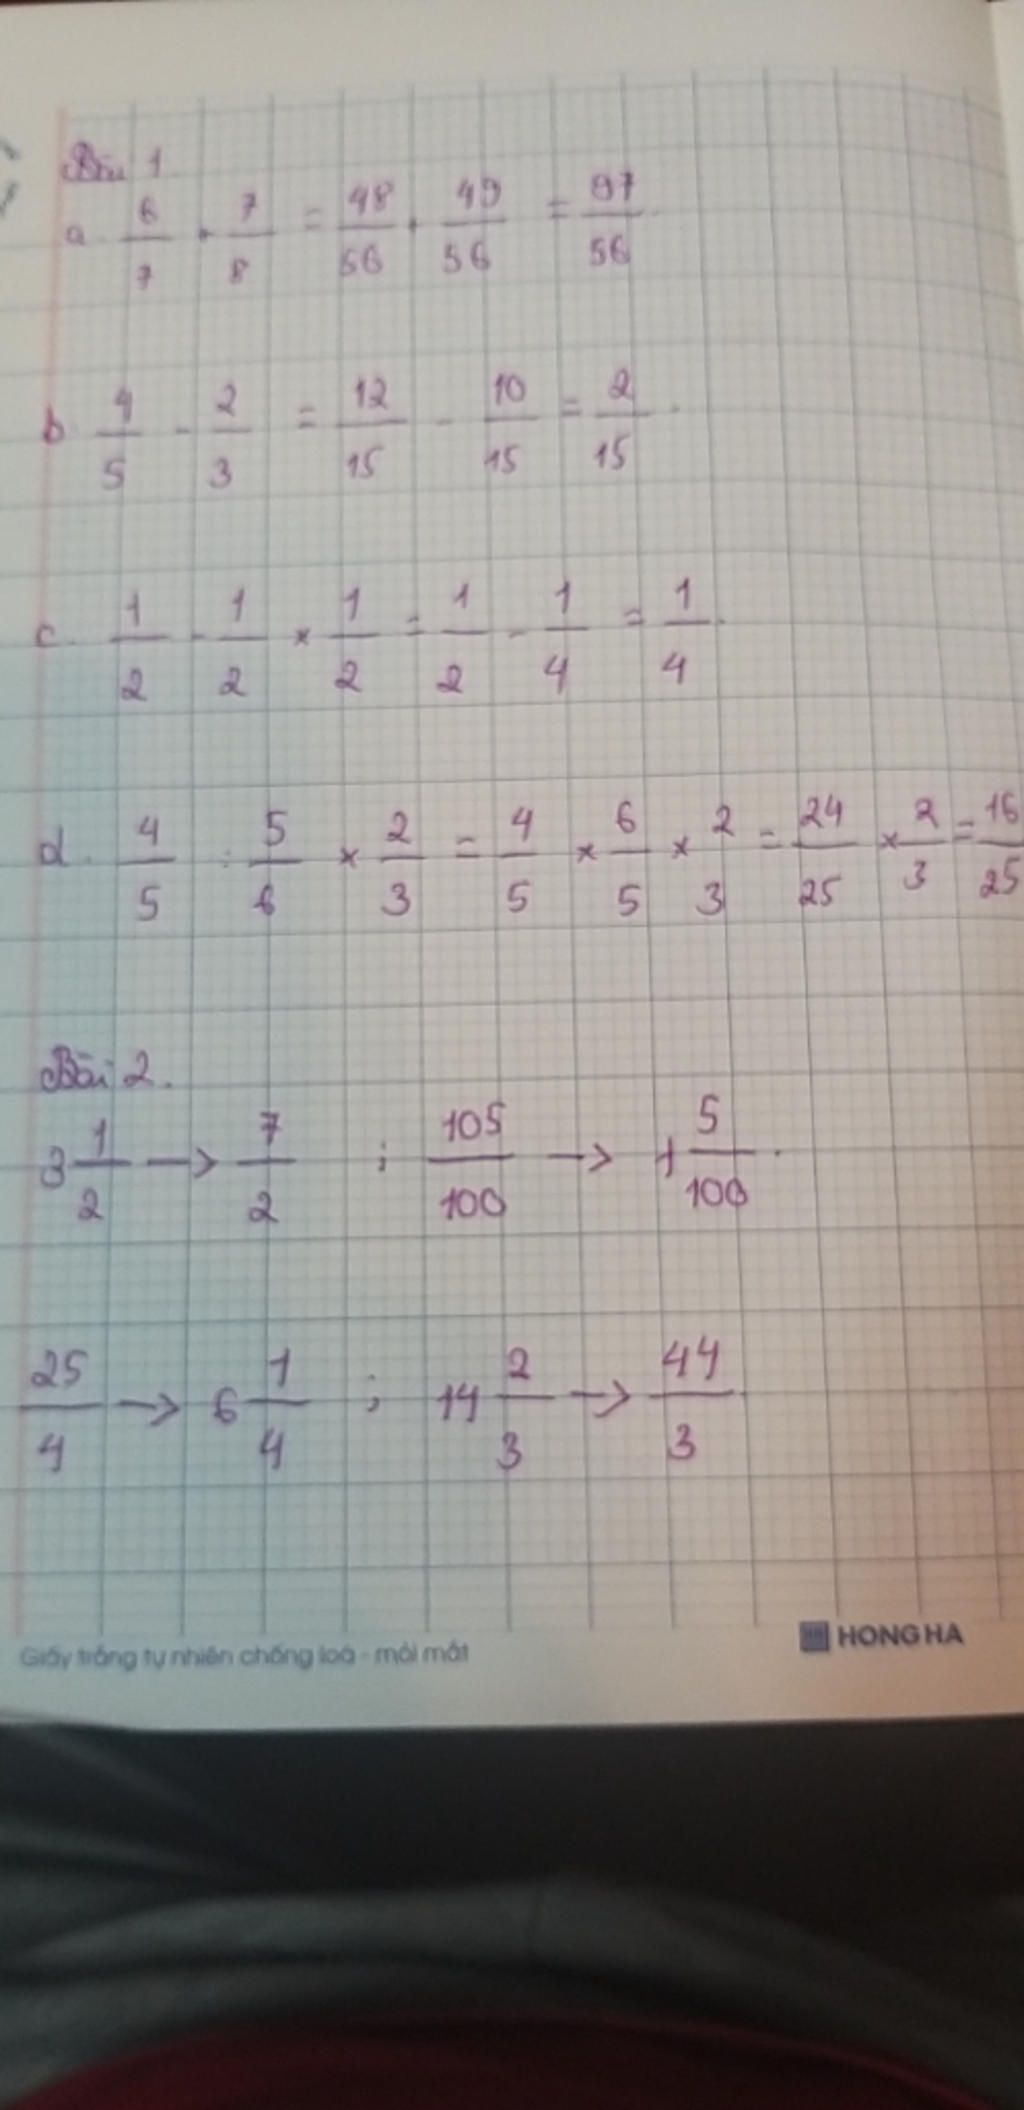 Bài 1
a. 6/7 + 7/8 = 48/56 + 49/56 = 97/56
b. 4/5 - 2/3 = 12/15 - 10/15 = 2/15.
c. 1/2 - 1/2 × 1/2 = 1/2 - 1/4 = 1/4
d. 4/5 : 5/6 × 2/3 = 4/5 × 6/5 × 2/3 = 24/25 × 2/3 = 16/25
Bài 2.
3 1/2 → 7/2 ; 105/100 → 1 5/100.
25/4 → 6 1/4 ; 14 2/3 → 44/3
Giấy trắng tự nhiên chống loá - mỏi mắt
HONG HA